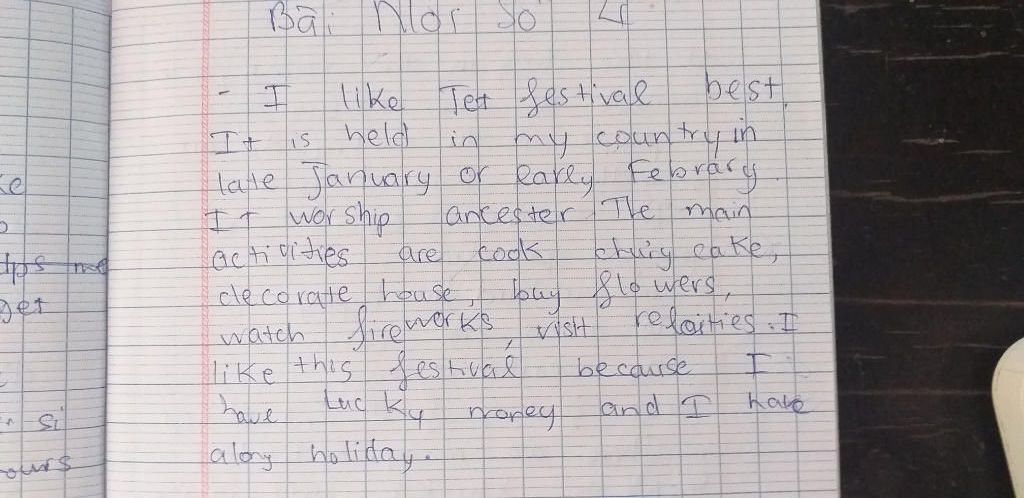 Bài Nói Số 4
- I like Tet festival best.
It is held in my country in
late January or Early Febrary.
It worship ancester The main
activities are cook chưng cake,
decorate house, buy flowers,
watch fireworks, visit relaities. I
like this festival because I
have Lucky money and I have
along holiday.
me
get
si
ours